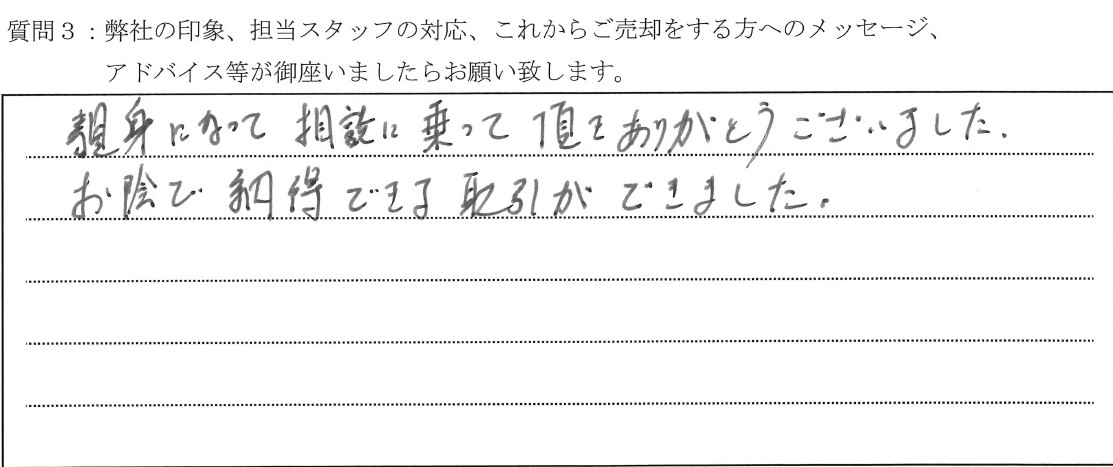 質問３：弊社の印象、担当スタッフの対応、これからご売却をする方へのメッセージ、
アドバイス等が御座いましたらお願い致します。
親身になって 相談に 乗って 頂きありがとうございました.
お陰で 納得できる 取引が できました.